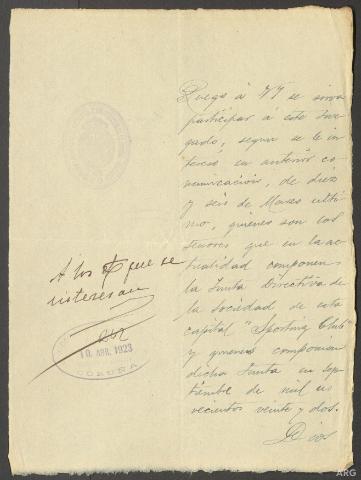 Ruego á VI se sirva
participar á este Juz-
gado, segun se le in-
teresó en anterior co-
municación, de diez
y seis de Marzo ulti-
mo, quienes son los
señores que en la ac-
tualidad componen
la Junta Directiva de
la sociedad de esta
capital "Sporting Club"
y quienes componian
dicha Junta en sep-
tiembre de mil no-
vecientos veinte y dos.
Dios
A los que se
interesan
10 ABR. 1923
CORUÑA
ARG